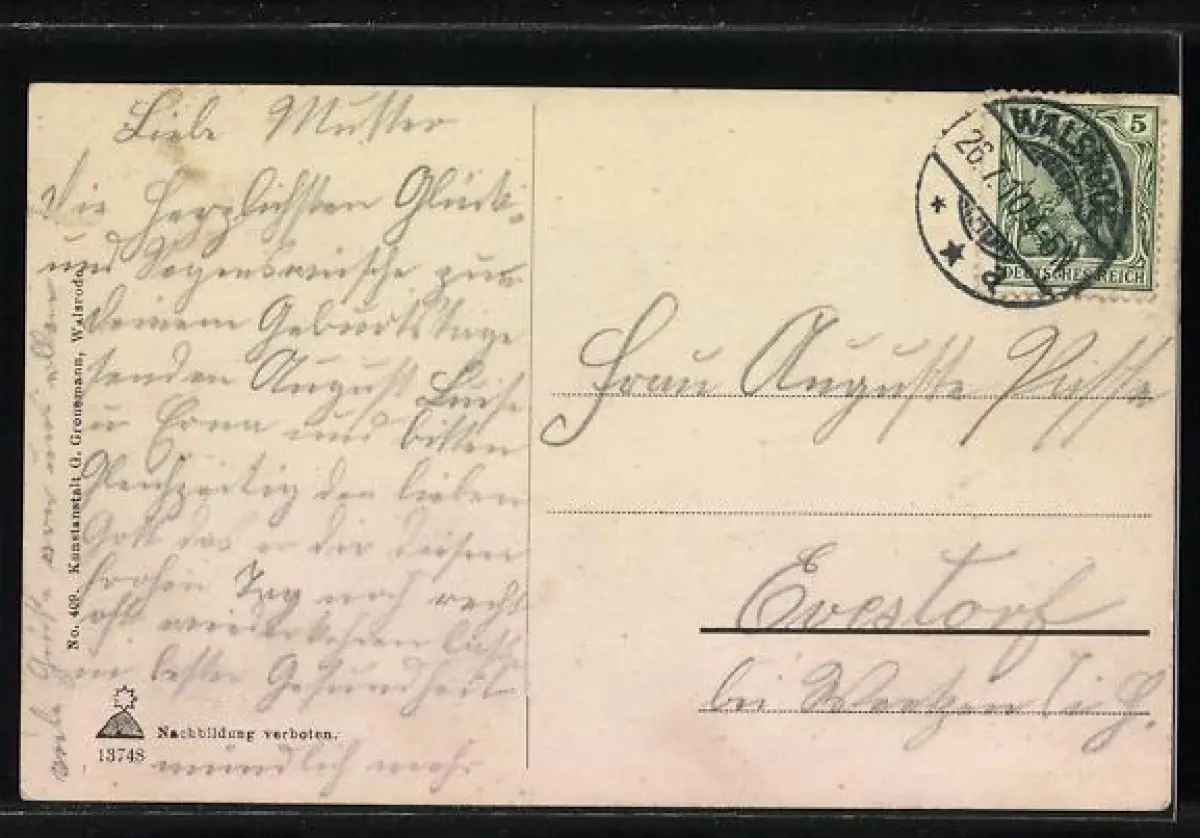 Liebe Mutter
Die herzlichsten Glück-
und Segenswünsche zu
deinem Geburtstage
senden August Luise
u Erna und bitten
Gleichzeitig den lieben
Gott das er dir diesen
frohen Tag noch recht
oft wiederkehren läßt
in bester Gesundheit
mündlich mehr
viele Grüße von uns allen
No. 409. Kunstanstalt G. Gronemann, Walsrode.
13748
Nachbildung verboten.
WALSRODE
26.7.10.
a
5
DEUTSCHES REICH
Frau Auguste
Evestorf
bei